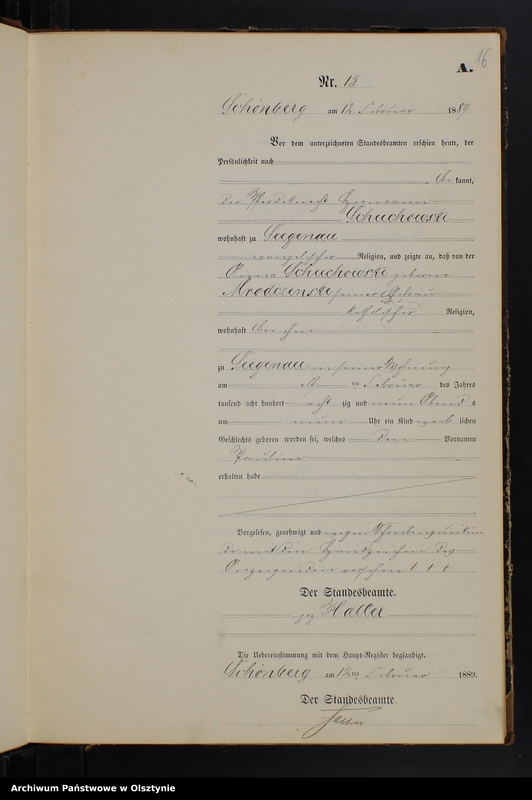 16
A.
Nr. 15
Schönberg am 12 Februar 1889
Vor dem unterzeichneten Standesbeamten erschien heute, der
Persönlichkeit nach
be kannt,
der Pferdeknecht Hermann
Schuchowski
wohnhaft zu Seegenau
evangelischer Religion, und zeigte an, daß von der
Schuchowski geborene
Mrodczenski seiner Ehefrau
katholischer Religion,
wohnhaft bei ihm
zu Seegenau in seiner Wohnung
am ten Februar des Jahres
tausend acht hundert acht zig und neun Abends
um neun Uhr ein Kind weib lichen
Geschlechts geboren worden sei, welches den Vornamen
Pauline
erhalten habe
Vorgelesen, genehmigt und wegen Schreibensunkun
de mit den Handzeichen des
Anzeigenden versehen † † †.
Der Standesbeamte.
gez Haller
Die Uebereinstimmung mit dem Haupt-Register beglaubigt.
Schönberg am 12ten Februar 1889.
Der Standesbeamte.
Haller
Archiwum Państwowe w Olsztynie